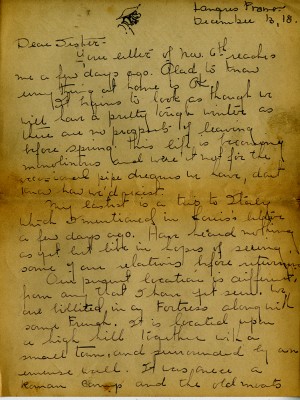 Langres France
December 13, 18.
Dear Sister -
Your letter of Nov. 6th reaches
me a few days ago. Glad to know
everything at home is OK.
It begins to look as though we
will have a pretty tough winter as
there are no prospects of leaving
before spring. This life is becoming
monotinous and were it not for the
occasional pipe dreams we have, dont
know how we'd exist.
My lastest is a trip to Italy
which I mentioned in letter
a few days ago. Have heard nothing
as yet but live in hopes of seeing
some of our relations before returning
Our present location is different
from any that I have yet seen. We
are billited in a Fortress along with
some French. It is located upon
a high hill together with a
small town, and surrounded by an
emense wall. It was once a
Roman Camp and the old moats